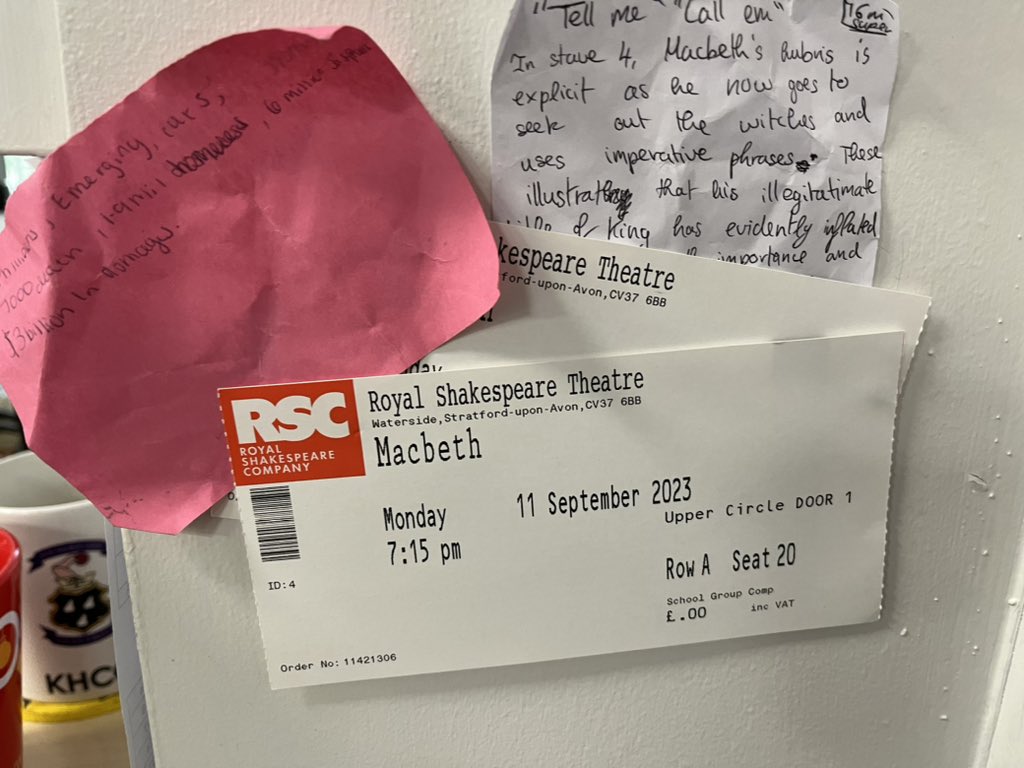 "Tell me" "Call em"
In stave 4, Macbeth's hubris is
explicit as he now goes to
seek out the witches and
uses imperative phrases. These
illustrating that his illegitatimate
of King has evidently inflated
importance and
Emerging,
$3 billion In damage.
kespeare Theatre
ford-upon-Avon,CV37 6BB
day
RSC
ROYAL
SHAKESPEARE
COMPANY
Royal Shakespeare Theatre
Waterside,Stratford-upon-Avon,CV37 6BB
Macbeth
Monday 11 September 2023
7:15 pm
Upper Circle DOOR 1
Row A Seat 20
School Group Comp
£.00 inc VAT
ID:4
Order No: 11421306
KHC